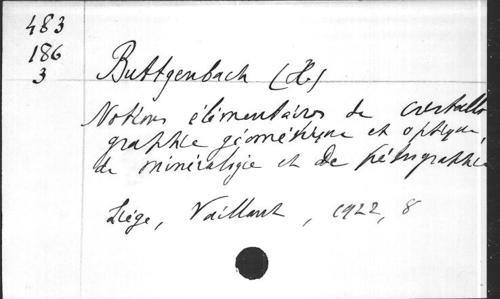 483
186
3
Buttgenbach (H.)
Notions élémentaires de cristallo
graphie géométrique et optique,
de minéralogie et de pétrographie
Liége, Vaillant, 1922, 8